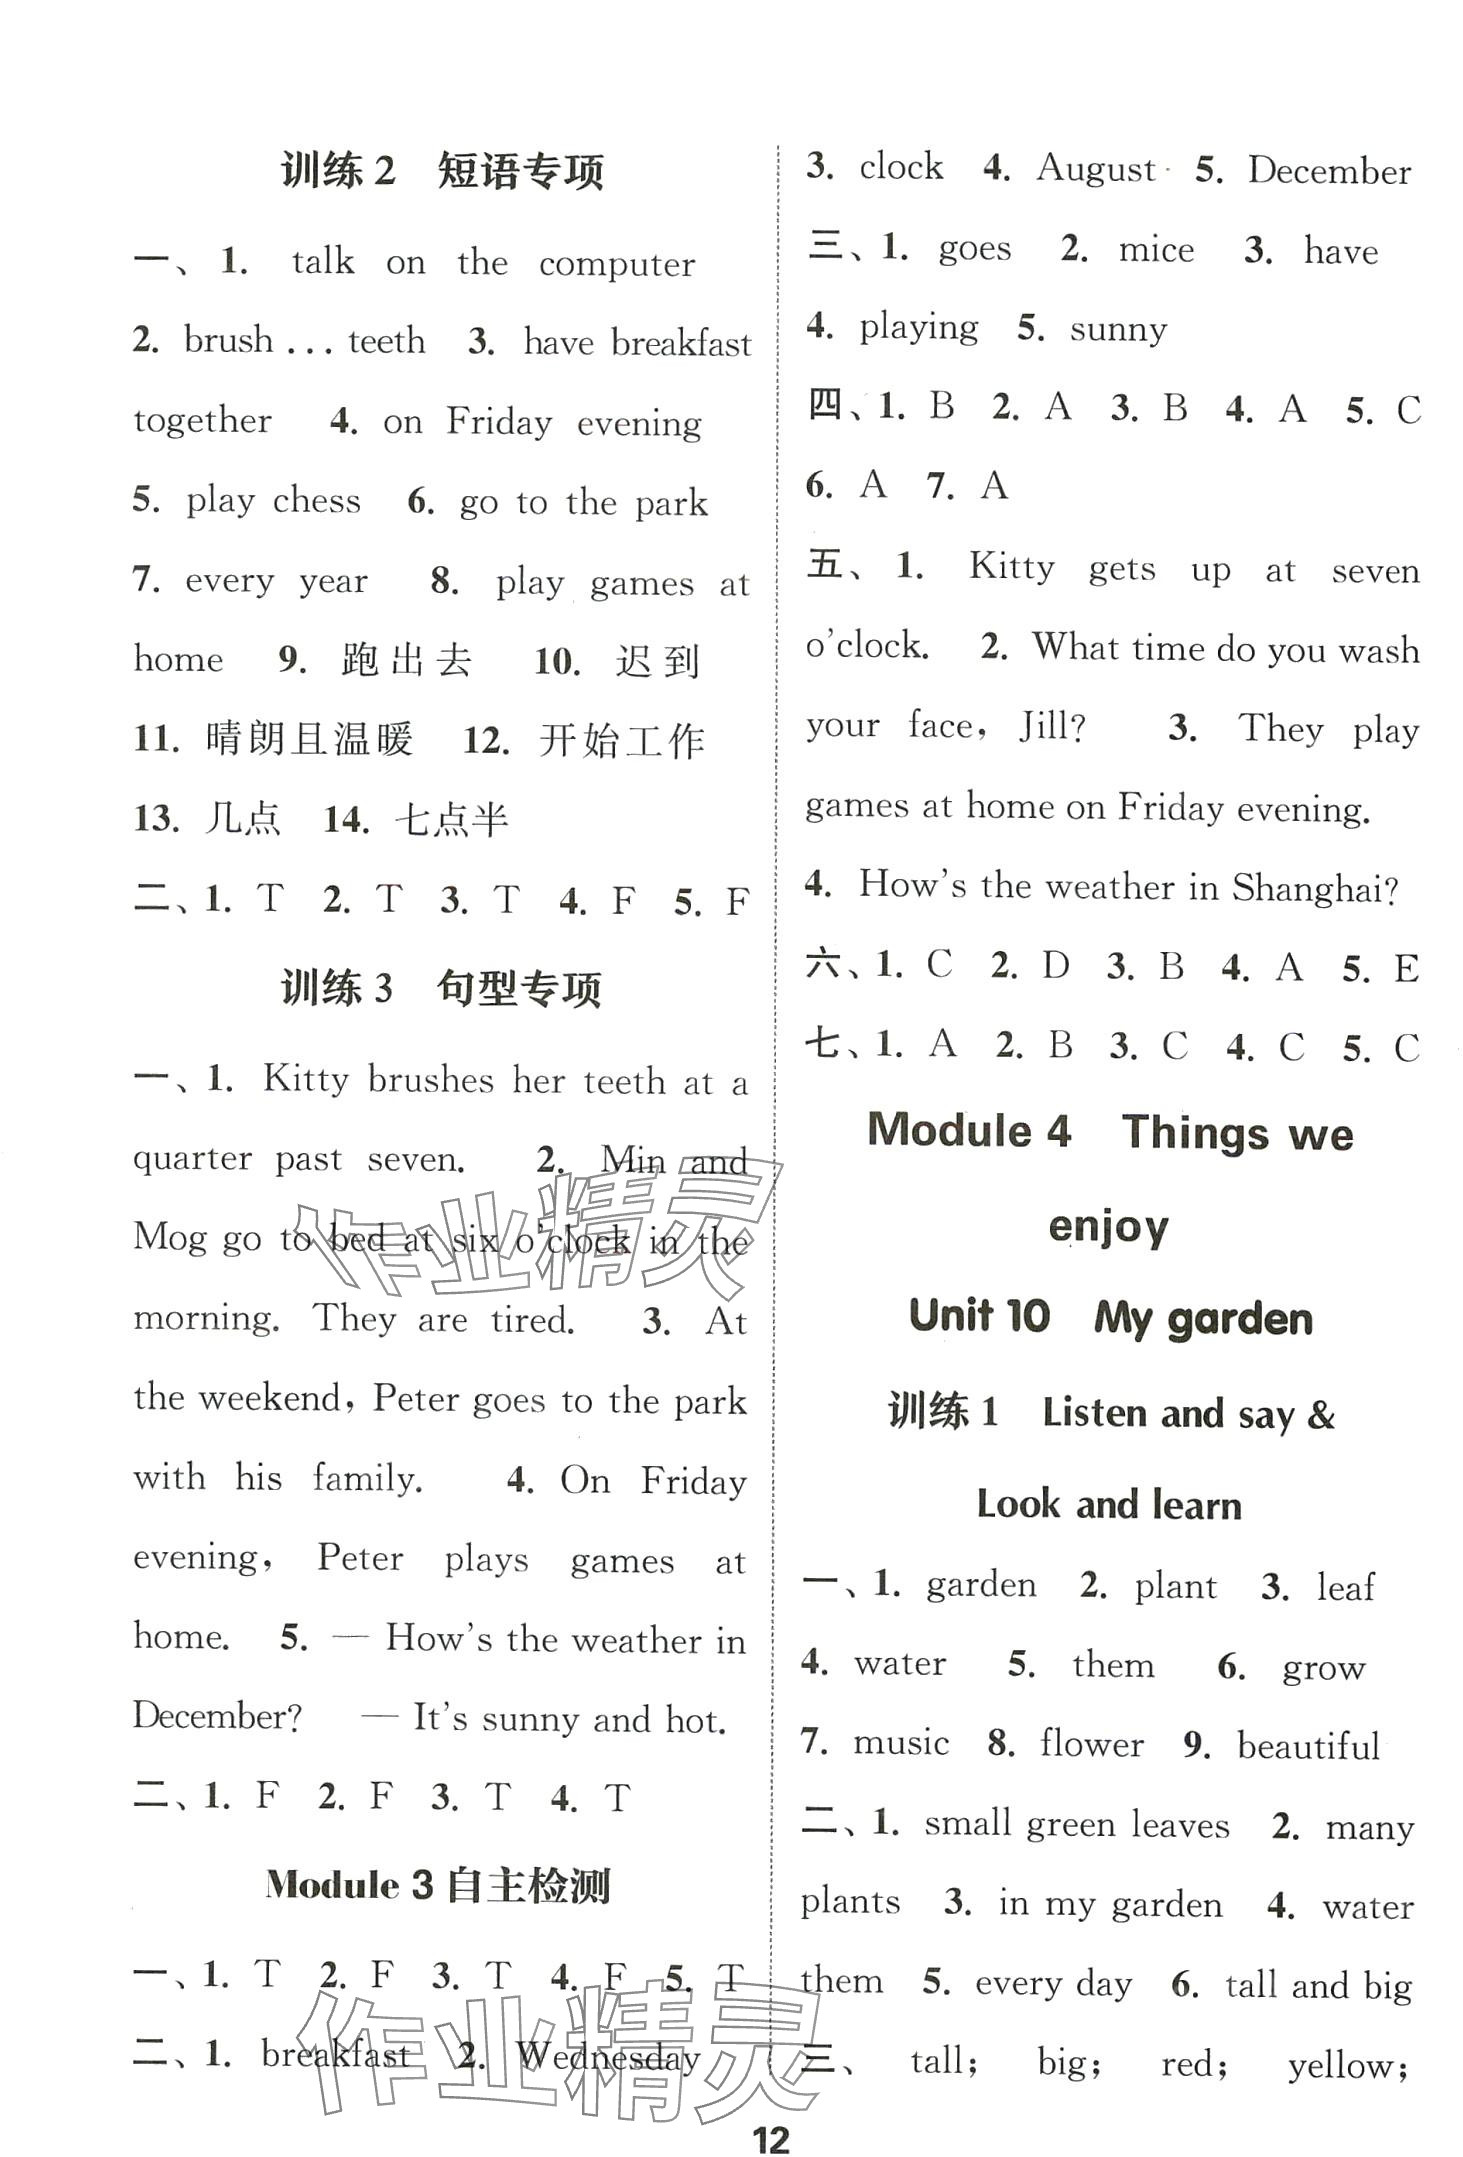 训练2 短语专项
一、1. talk on the computer
2. brush ... teeth 3. have breakfast
together 4. on Friday evening
5. play chess 6. go to the park
7. every year 8. play games at
home 9. 跑出去 10. 迟到
11. 晴朗且温暖 12. 开始工作
13. 几点 14. 七点半
二、1. T 2. T 3. T 4. F 5. F
训练3 句型专项
一、1. Kitty brushes her teeth at a
quarter past seven. 2. Min and
Mog go to bed at six o'clock in the
morning. They are tired. 3. At
the weekend, Peter goes to the park
with his family. 4. On Friday
evening, Peter plays games at
home. 5. — How's the weather in
December? — It's sunny and hot.
二、1. F 2. F 3. T 4. T
Module 3 自主检测
一、1. T 2. F 3. T 4. F 5. T
二、1. breakfast 2. Wednesday
3. clock 4. August 5. December
三、1. goes 2. mice 3. have
4. playing 5. sunny
四、1. B 2. A 3. B 4. A 5. C
6. A 7. A
五、1. Kitty gets up at seven
o'clock. 2. What time do you wash
your face, Jill? 3. They play
games at home on Friday evening.
4. How's the weather in Shanghai?
六、1. C 2. D 3. B 4. A 5. E
七、1. A 2. B 3. C 4. C 5. C
Module 4 Things we
enjoy
Unit 10 My garden
训练1 Listen and say &
Look and learn
一、1. garden 2. plant 3. leaf
4. water 5. them 6. grow
7. music 8. flower 9. beautiful
二、1. small green leaves 2. many
plants 3. in my garden 4. water
them 5. every day 6. tall and big
三、 tall; big; red; yellow;
12
作业精灵
作业精灵